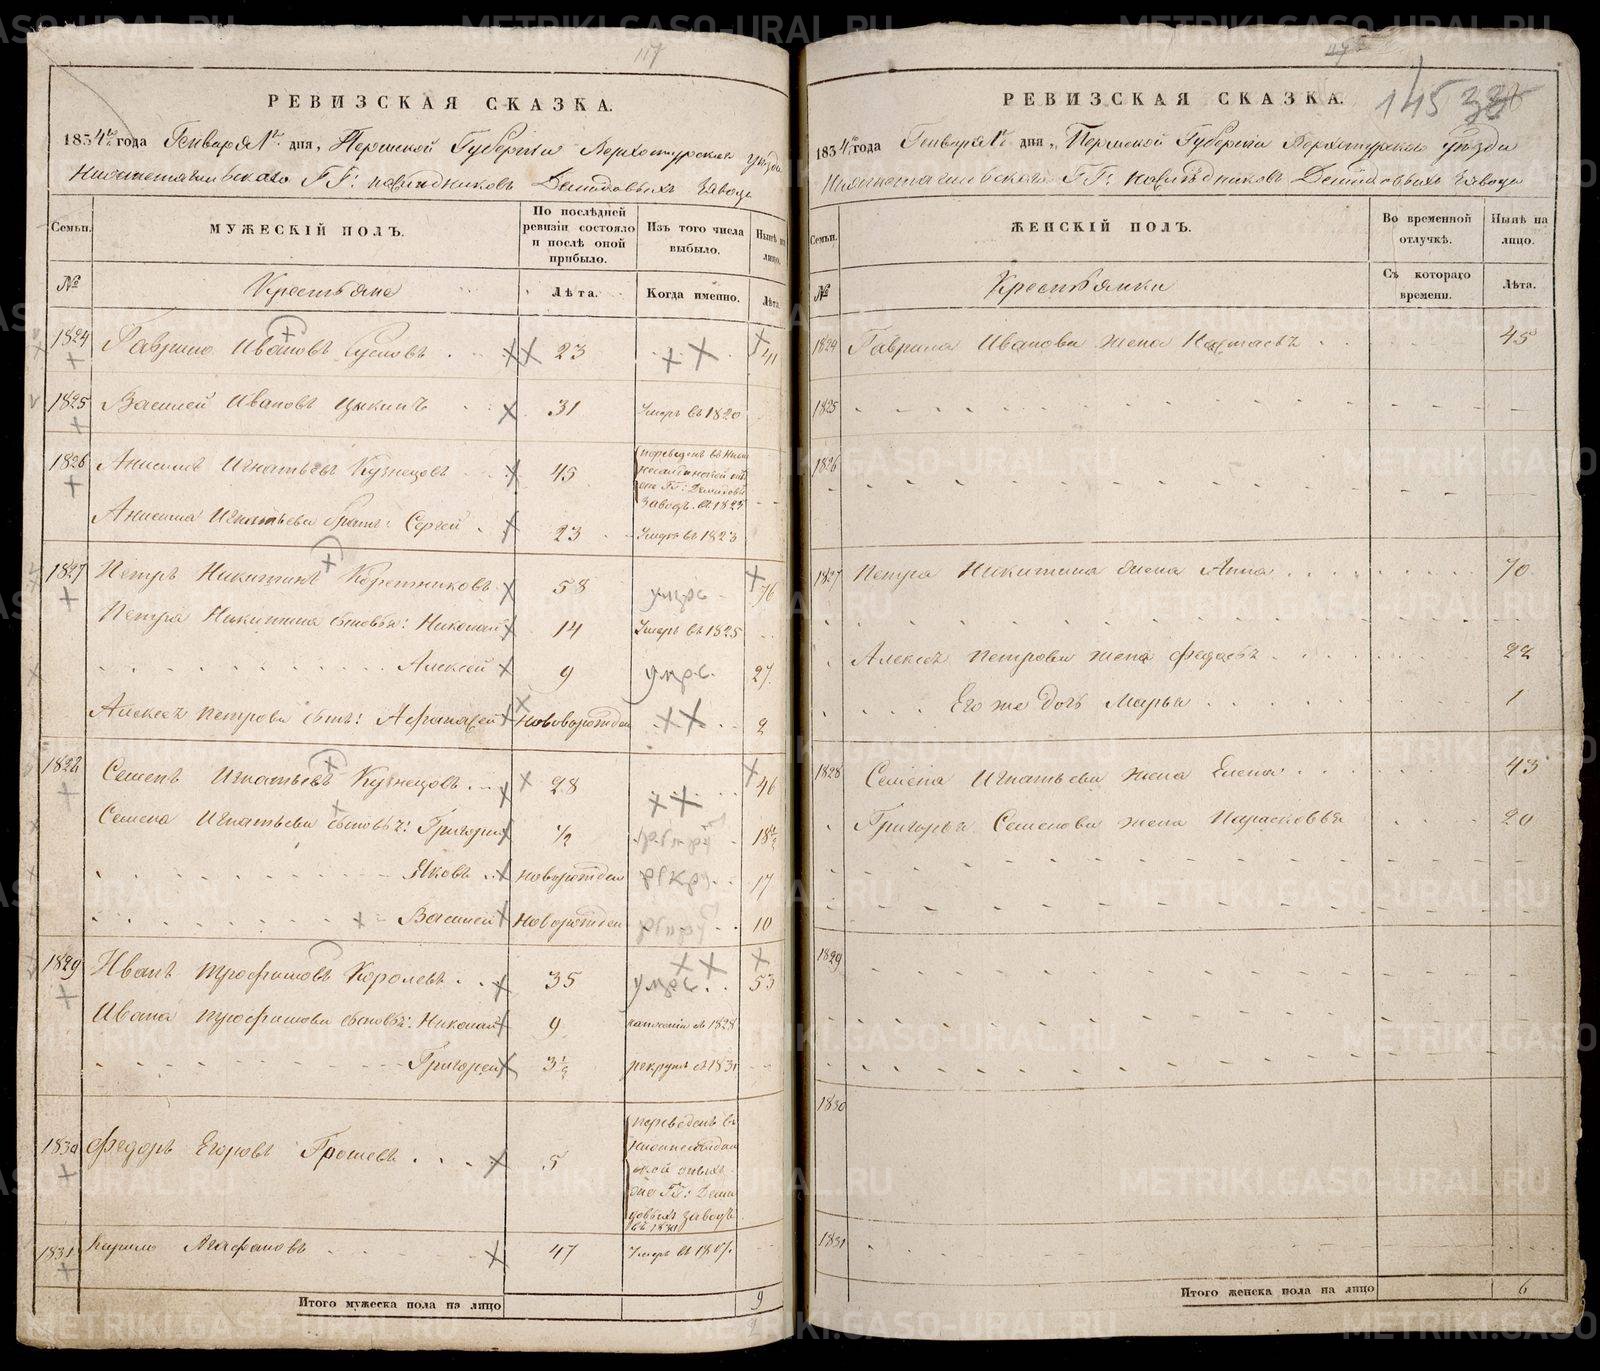 117
РЕВИЗСКАЯ СКАЗКА.
1834го года Генваря 1го дня, Пермской Губернии Верхотурскаго уѣзда
Нижнетагильскаго ГГ: наслѣдниковъ Демидовыхъ Завода
Семьи.
МУЖЕСКІЙ ПОЛЪ.
По послѣдней ревизіи состояло и послѣ оной прибыло.
Изъ того числа выбыло.
Нынѣ на лицо.
№
Крестьяне
Лѣта.
Когда именно.
Лѣта.
1824 Гаврило Ивановъ Сусловъ 23 41
1825 Василей Ивановъ 31 Умеръ въ 1820
1826 Анисимъ Игнатьевъ Кузнецовъ 45 переведенъ въ
ГГ: Демидовыхъ
Заводъ въ 1825
Анисима Игнатьева братъ: Сергей 23 Умеръ въ 1823
1827 Петръ Никитинъ Коротниковъ 58 умре 76
Петра Никитина сыновья: Николай 14 Умеръ въ 1825
Алексей 9 умре. 27
Алексея Петрова сынъ: Афанасей Новорожден 2
1828 Семенъ Игнатьевъ Кузнецовъ 28 46
Семена Игнатьева сыновья: Григорей 1/2 18 1/2
Яковъ новорожден 17
Василей Новорожден 10
1829 Иванъ Трофимовъ Королевъ 35 умре 53
Ивана Трофимова сыновья: Николай 9 въ 1828
Григорей 3 1/2 рекрутъ въ 1831
1830 Федоръ Егоровъ Грошевъ 5 переведенъ въ
ГГ: Деми
довыхъ заводъ
въ 1830
1831 Кирило Агафоновъ 47 Умеръ въ
Итого мужеска пола на лицо 9
145
РЕВИЗСКАЯ СКАЗКА.
1834го года Генваря 1го дня, Пермской Губернии Верхотурскаго уѣзда
Нижнетагильскаго ГГ: наслѣдниковъ Демидовыхъ Завода
Семьи.
ЖЕНСКІЙ ПОЛЪ.
Во временной отлучкѣ.
Нынѣ на лицо.
№
Крестьянки
Съ котораго времени.
Лѣта.
1824 Гаврила Иванова жена Настасья 45
1825
1826
1827 Петра Никитина жена Анна 70
Алексея Петрова жена Федосья 22
Его же дочь Марья 1
1828 Семена Игнатьева жена Елена 43
Григорья Семенова жена Парасковья 20
1829
1830
1831
Итого женска пола на лицо 6
METRIKI.GASO-URAL.RU